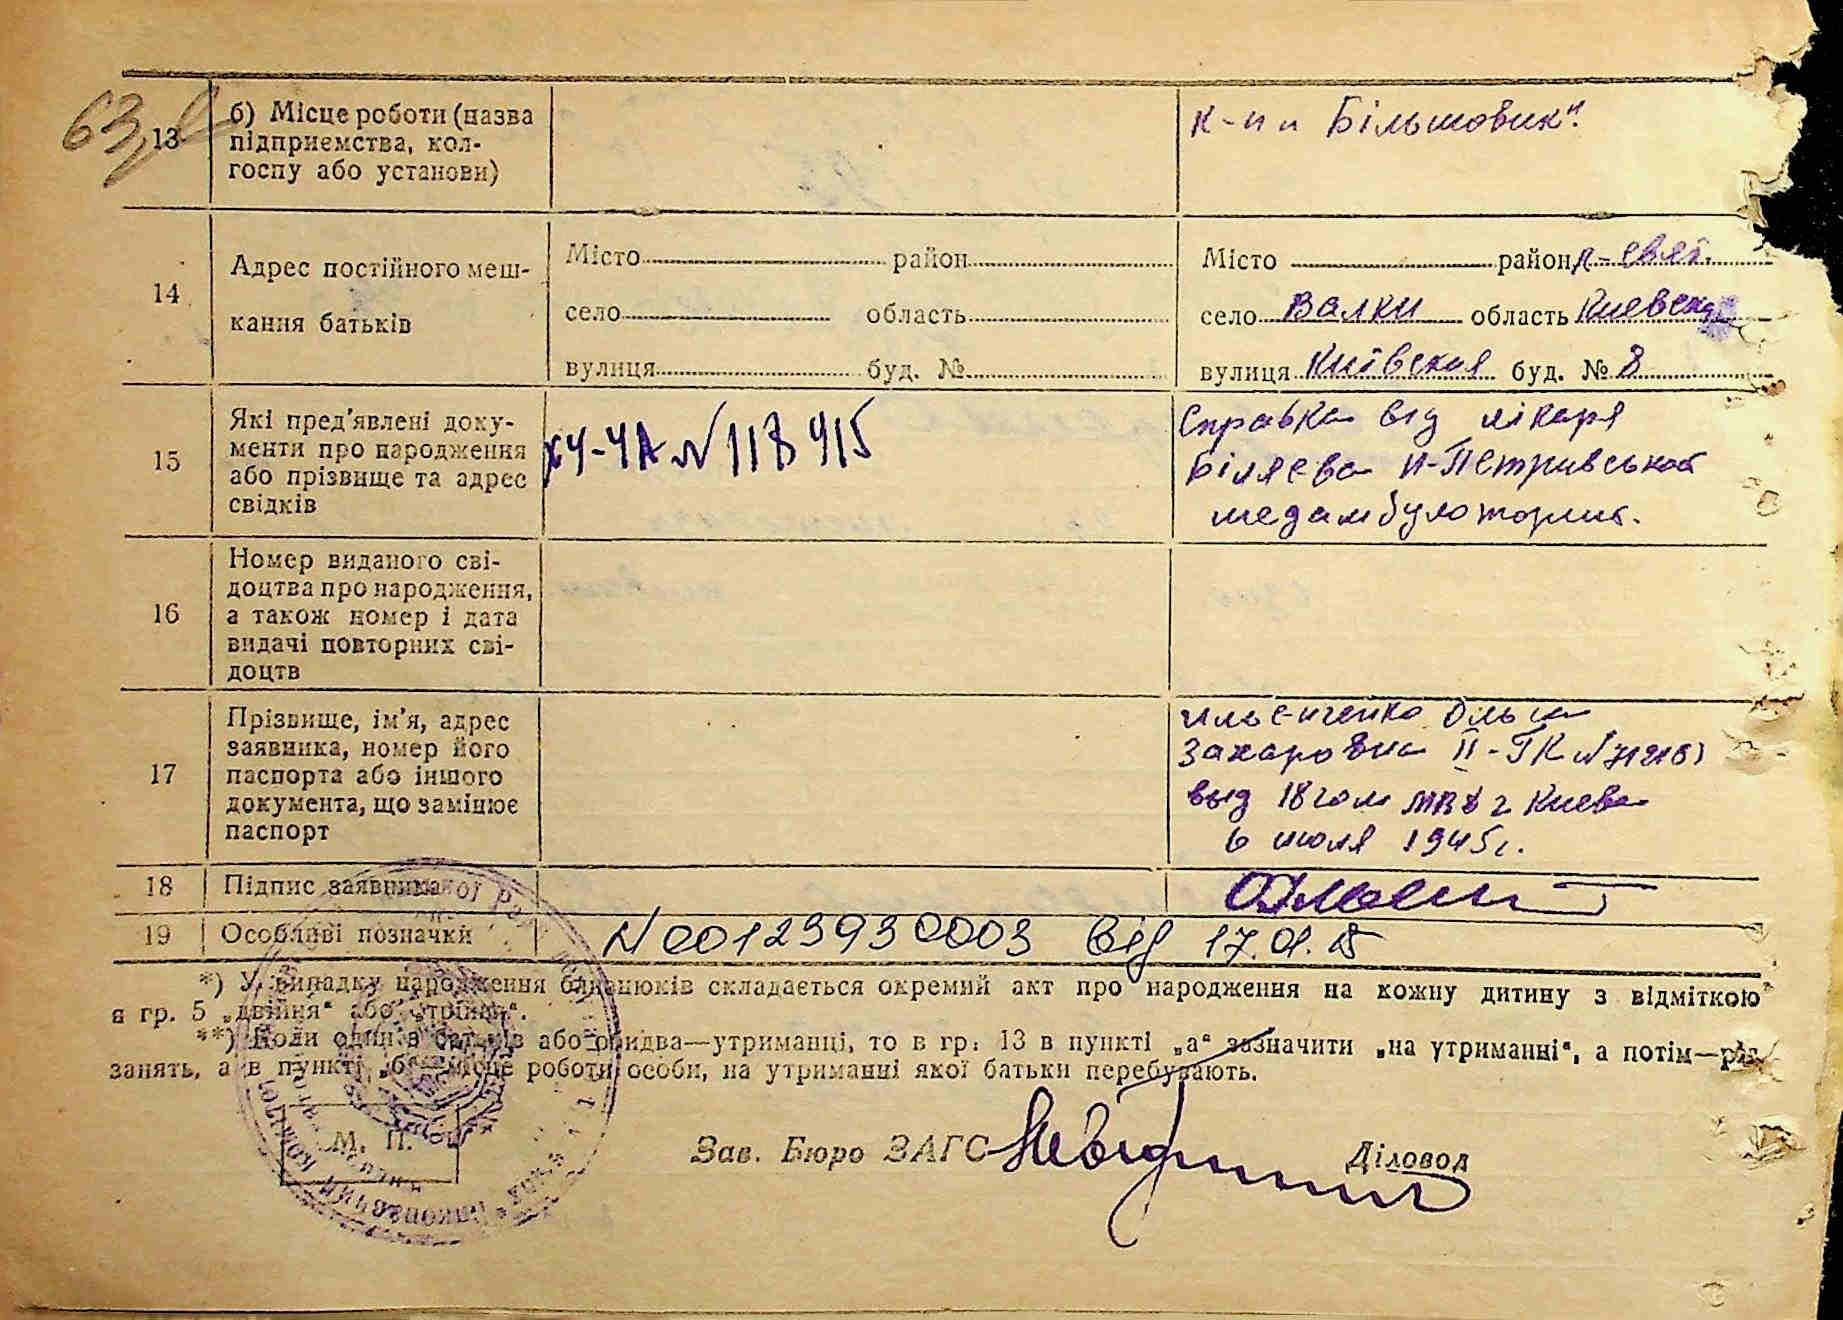 63
13
б) Місце роботи (назва
підприємства, кол-
госпу або установи)
к-п „ Більшовик".
14
Адрес постійного меш-
кання батьків
Місто район
село область
вулиця буд. №
Місто район
село Валки область Киевска
вулиця Київская буд. № 8
15
Які пред'явлені доку-
менти про народження
або прізвище та адрес
свідків
ХЧ-ЧА № 118415
Справка від лікаря
Біляєва Н-Петривської
медамбулатории.
16
Номер виданого сві-
доцтва про народження,
а також номер і дата
видачі повторних сві-
доцтв
17
Прізвище, ім'я, адрес
заявника, номер його
паспорта або іншого
документа, що замінює
паспорт
Ольга
Захаровна II-ТК №
выд 18 г Киева
6 июля 1945г.
18
Підпис заявника
19
Особливі позначки
№ 00123930003 від 17.01.
*) У випадку народження близнюків складається окремий акт про народження на кожну дитину з відміткою
в гр. 5 „двійня" або „трійня".
**) Коли один з батьків або обидва—утриманці, то в гр. 13 в пункті „а" зазначити „на утриманні", а потім—рід
занять, а в пункті „б"—місце роботи особи, на утриманні якої батьки перебувають.
М. П.
Зав. Бюро ЗАГС
Діловод